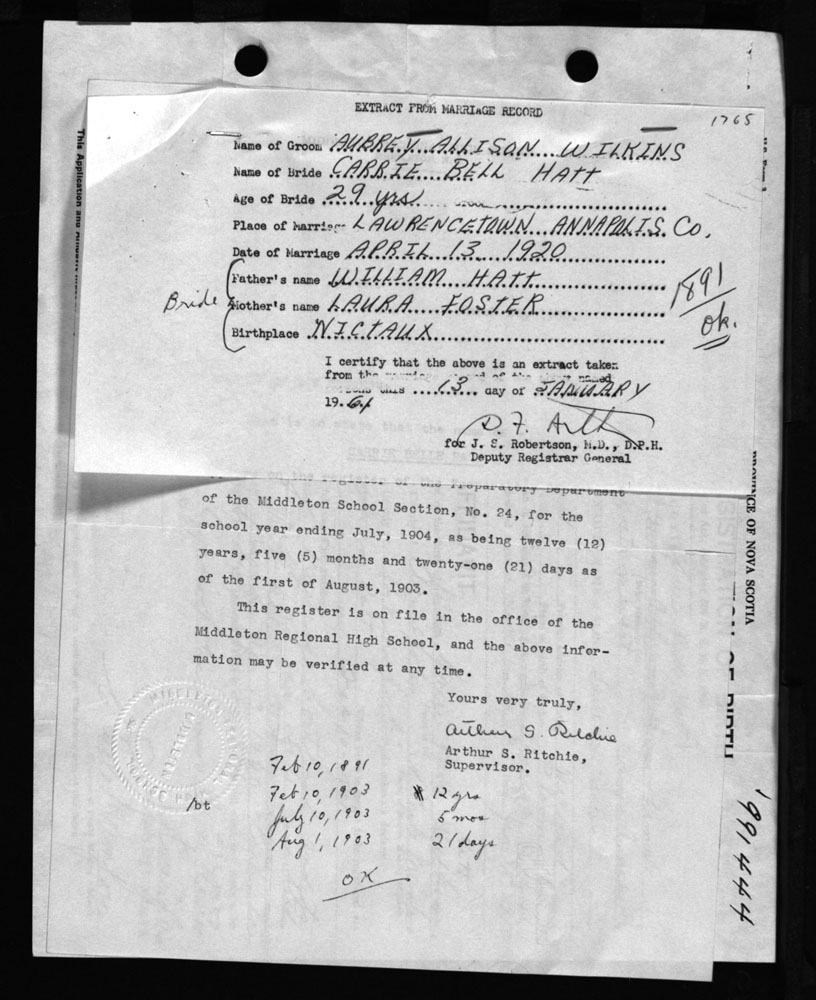 EXTRACT FROM MARRIAGE RECORD
1765
Name of Groom AUBREY ALLISON WILKINS
Name of Bride CARRIE BELL HATT
Age of Bride 29 yrs.
Place of Marriage LAWRENCETOWN ANNAPOLIS Co.
Date of Marriage APRIL 13 1920
Father's name WILLIAM HATT
Bride Mother's name LAURA FOSTER
Birthplace NICTAUX
1891
ok.
I certify that the above is an extract taken
from the
13 day of JANUARY
1961
for J. S. Robertson, M.D., D.P.H.
Deputy Registrar General
register of the Preparatory Department
of the Middleton School Section, No. 24, for the
school year ending July, 1904, as being twelve (12)
years, five (5) months and twenty-one (21) days as
of the first of August, 1903.
This register is on file in the office of the
Middleton Regional High School, and the above infor-
mation may be verified at any time.
Yours very truly,
Arthur S. Ritchie
Arthur S. Ritchie,
Supervisor.
/bt
Feb 10, 1891
Feb 10, 1903 12 yrs
July 10, 1903 5 mos
Aug 1, 1903 21 days
OK
This Application and
PROVINCE OF NOVA SCOTIA
OF BIRTH
'991444